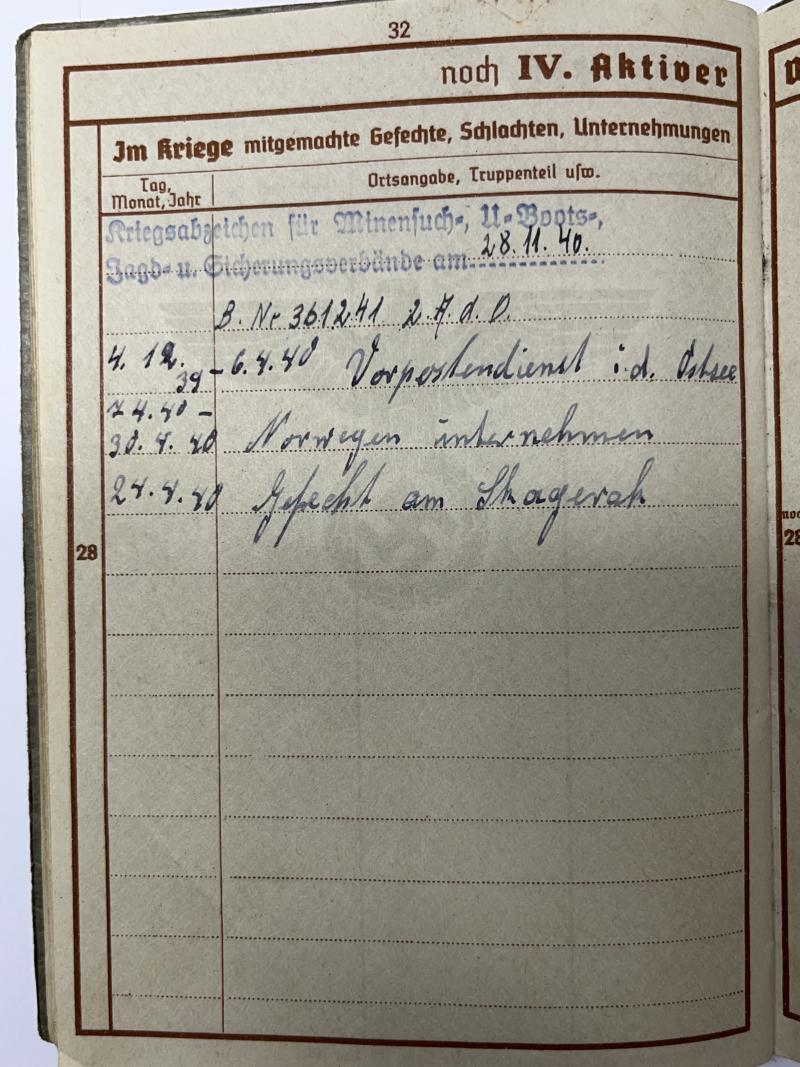 32
noch IV. Aktiver
Im Kriege mitgemachte Gefechte, Schlachten, Unternehmungen
Tag,
Monat, Jahr
Ortsangabe, Truppenteil usw.
Kriegsabzeichen für Minensuch-, U-Boots-,
Jagd- u. Sicherungsverbände am 28.11.40.
B. Nr. 361241 2. A. d. O.
4. 12. 39 - 6.4.40 Vorpostendienst i. d. Ostsee
7 4.40 -
30. 4. 40 Norwegen unternehmen
24.4.40 Gefecht am Skagerak
28
noc
28